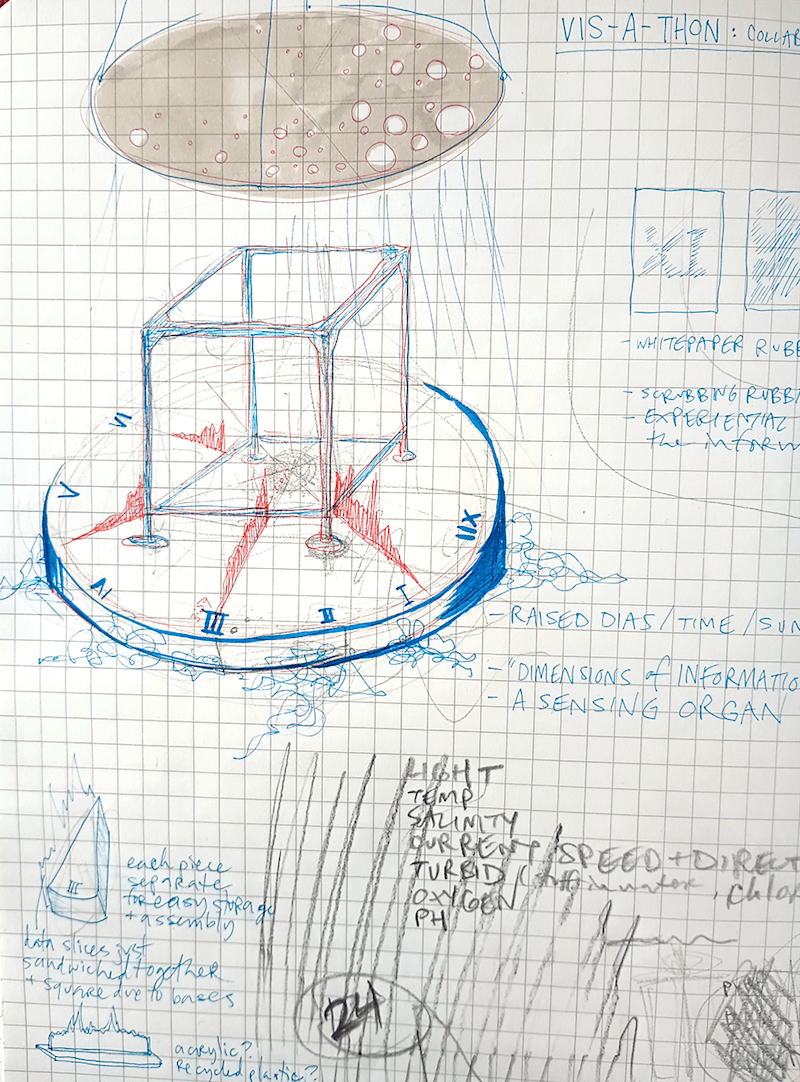 VIS-A-THON: COLLAB
x1
- WHITEPAPER RUBB
- SCRUBBING RUBBI
- EXPERIENTIAL
the inform
VI
V
IV
III
II
I
XII
- RAISED DIAS/TIME/SUN
- "DIMENSIONS of INFORMATIO
- A SENSING ORGAN
LIGHT
TEMP
SALINITY
CURRENT/SPEED+DIRECT
TURBID (stuff in water, chlor
OXYGEN
PH
III
each piece
separate
for easy storage
+ assembly
data slices just
sandwiched together
+ square due to bases
24
acrylic?
Recycled plastic?